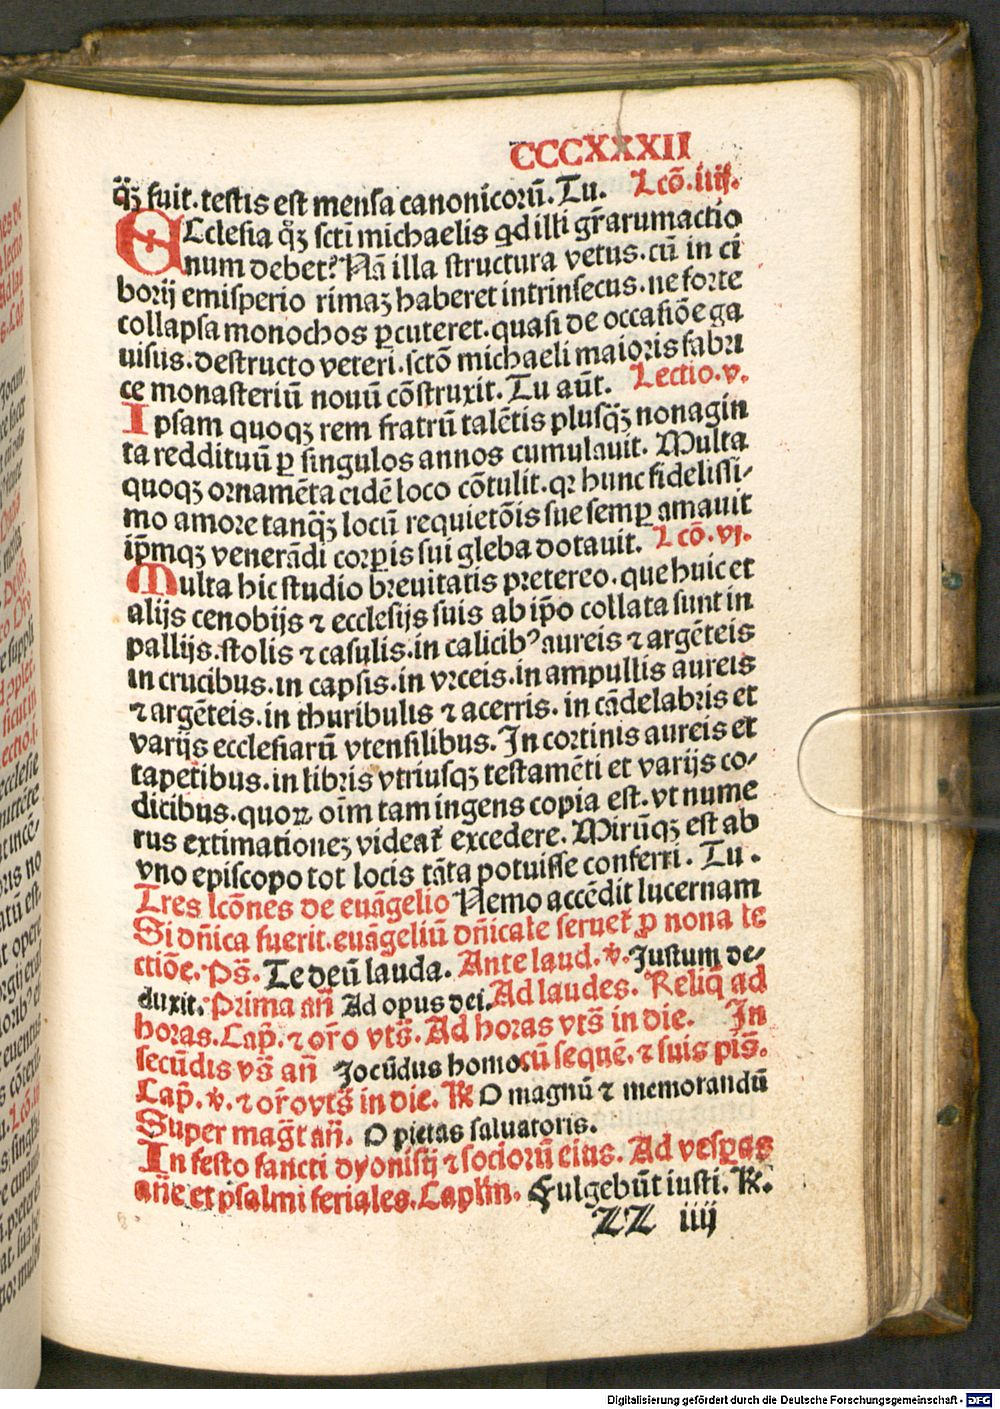 CCCXXXII
q̄ꝫ fuit. testis est mensa canonicoꝛū. Tu. Lcō. iiij.
ECclesia qͦꝫ scti michaelis qd illi gr̄arumactio
num debet? Nā illa structura vetus. cū in ci
borij emisperio rimaꝫ haberet intrinsecus. ne forte
collapsa monochos ꝑcuteret. quasi de occasiōe ga
uisus. destructo veteri. sctō michaeli maioꝛis fabri
ce monasteriū nouū cōstruxit. Tu aūt. Lectio. v.
Ipsam quoqꝫ rem fratrū talētis plusq̄ꝫ nonagin
ta reddituū ꝑ singulos annos cumulauit. Multa
quoqꝫ oꝛnamēta eidē loco cōtulit. qꝛ hunc fidelissi⸗
mo amore tanq̄ꝫ locū requietōis sue semꝑ amauit
ip̄mqꝫ venerādi coꝛꝑis sui gleba dotauit. Lcō. vj.
Multa hic studio breuitatis pretereo. que huic et
alijs cenobijs ⁊ ecclesijs suis ab ip̄o collata sunt in
pallijs. stolis ⁊ casulis. in calicibꝰ aureis ⁊ argēteis
in crucibus. in capsis. in vrceis. in ampullis aureis
⁊ argēteis. in thuribulis ⁊ acerris. in cādelabris et
varijs ecclesiarū vtensilibus. In coꝛtinis aureis et
tapetibus. in libris vtriusqꝫ testamēti et varijs co⸗
dicibus. quoꝝ oīm tam ingens copia est. vt nume
rus extimationeꝫ videat᷑ excedere. Mirūqꝫ est ab
vno episcopo tot locis tāta potuisse conferri. Tu.
Tres lcōnes de euāgelio Nemo accēdit lucernam
Si dn̄ica fuerit. euāgeliū dn̄icale seruet᷑ ꝑ nona le
ctiōe. Ps̄. Te deū lauda. Ante laud. ℣. Justum de⸗
duxit. Prima an̄ Ad opus dei. Ad laudes. Reliq̄ ad
horas. Cap̄. ⁊ oŕo vts̄. Ad horas vts̄ in die. In
secūdis vs̄ an̄ Jocūdus homo. cū sequē. ⁊ suis pis̄.
Cap̄. ℣. ⁊ oŕo vts̄ in die. ℟ O magnū ⁊ memorandū
Super maḡt an̄. O pietas saluatoris.
In festo sancti dyonisij ⁊ socioꝛū eius. Ad vesꝑas
an̄e et psalmi feriales. Caplm̄. Fulgebūt iusti. ℟.
ZZ iiij
Digitalisierung gefördert durch die Deutsche Forschungsgemeinschaft - DFG